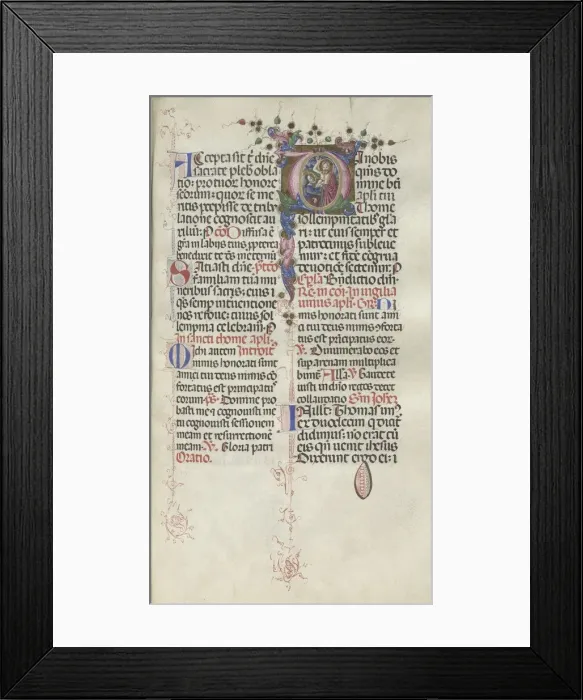 Accepta sit t dn̄e
sacrate pleb obla
tio: pro tuor honore
scorum: quor se me
ritis
latione cognoscit au
xiliū: P cō
gr̄a in labiis tuis
benedixit te d's
Satiasti dn̄e
familiam tuā mu
neribus sacris: eius
q's semp interuentione
nos refoue: cuius sol
lempnia celebram. P
In sancti thome apli.
Michi autem Introit
nimis honorati sunt
amici tui deus nimis cō
fortatus est principatu
eorum. ps. Domine pro
basti me: cognouisti me
tu cognouisti sessionem
meam et resurrectionē
meam. V. Gloria patri
Oratio.
Da nobis
q's do
mine bti
apli tui
Thome
sollempnitatib gla
ri: ut eius semper et
patrociniis subleue
mur: et fidē cōgrua
deuotiōe sectemur. P
Epla
Re. in coī. In uigilia
unius apli. Gr. Ni
mis honorati sunt ami
ci tui deus nimis 9forta
tus est p̄cipatus eor.
V. Dinumerabo eos et
sup arenam multiplica
bunt̄ Alla. V. Gaudete
iusti in dn̄o rectos decet
collaudatio Em Johēz
In illo t. Thomas un9
ex duodecim q dicit
didimus: no erat cū
eis qn̄ uenit ihesus
Dixerunt ergo ei: i